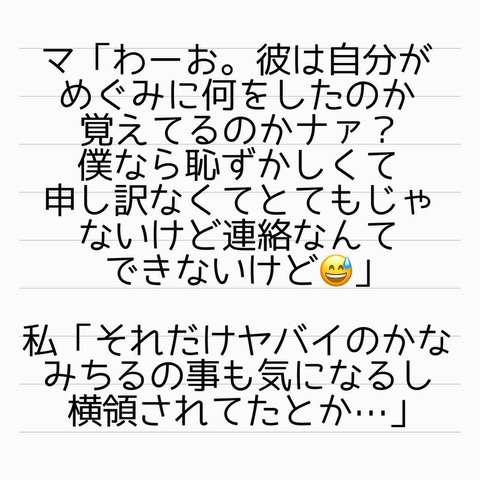 マ「わーお。彼は自分が
めぐみに何をしたのか
覚えてるのかナァ？
僕なら恥ずかしくて
申し訳なくてとてもじゃ
ないけど連絡なんて
できないけど😅」
私「それだけヤバイのかな
みちるの事も気になるし
横領されてたとか…」